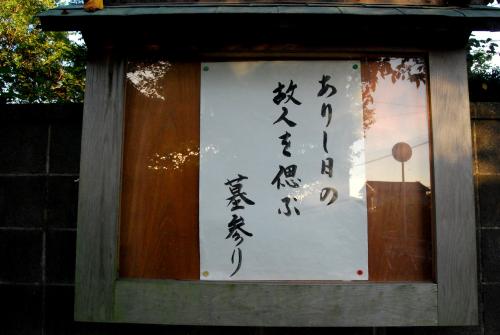 ありし日の
故人を偲ぶ
墓参り